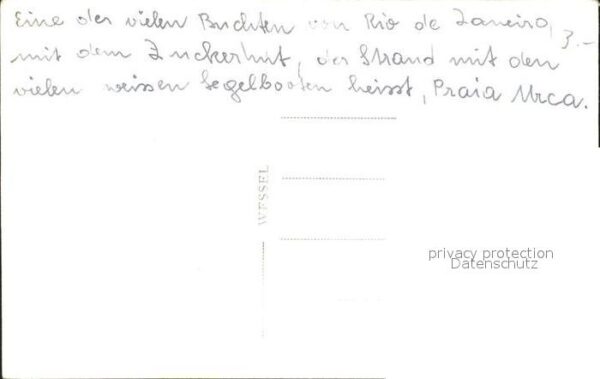 Eine der vielen Buchten von Rio de Janeiro,
3.-
mit dem Zuckerhut, der Strand mit den
vielen weissen Segelbooten heisst, Praia Urca.
WESSEL
privacy protection
Datenschutz